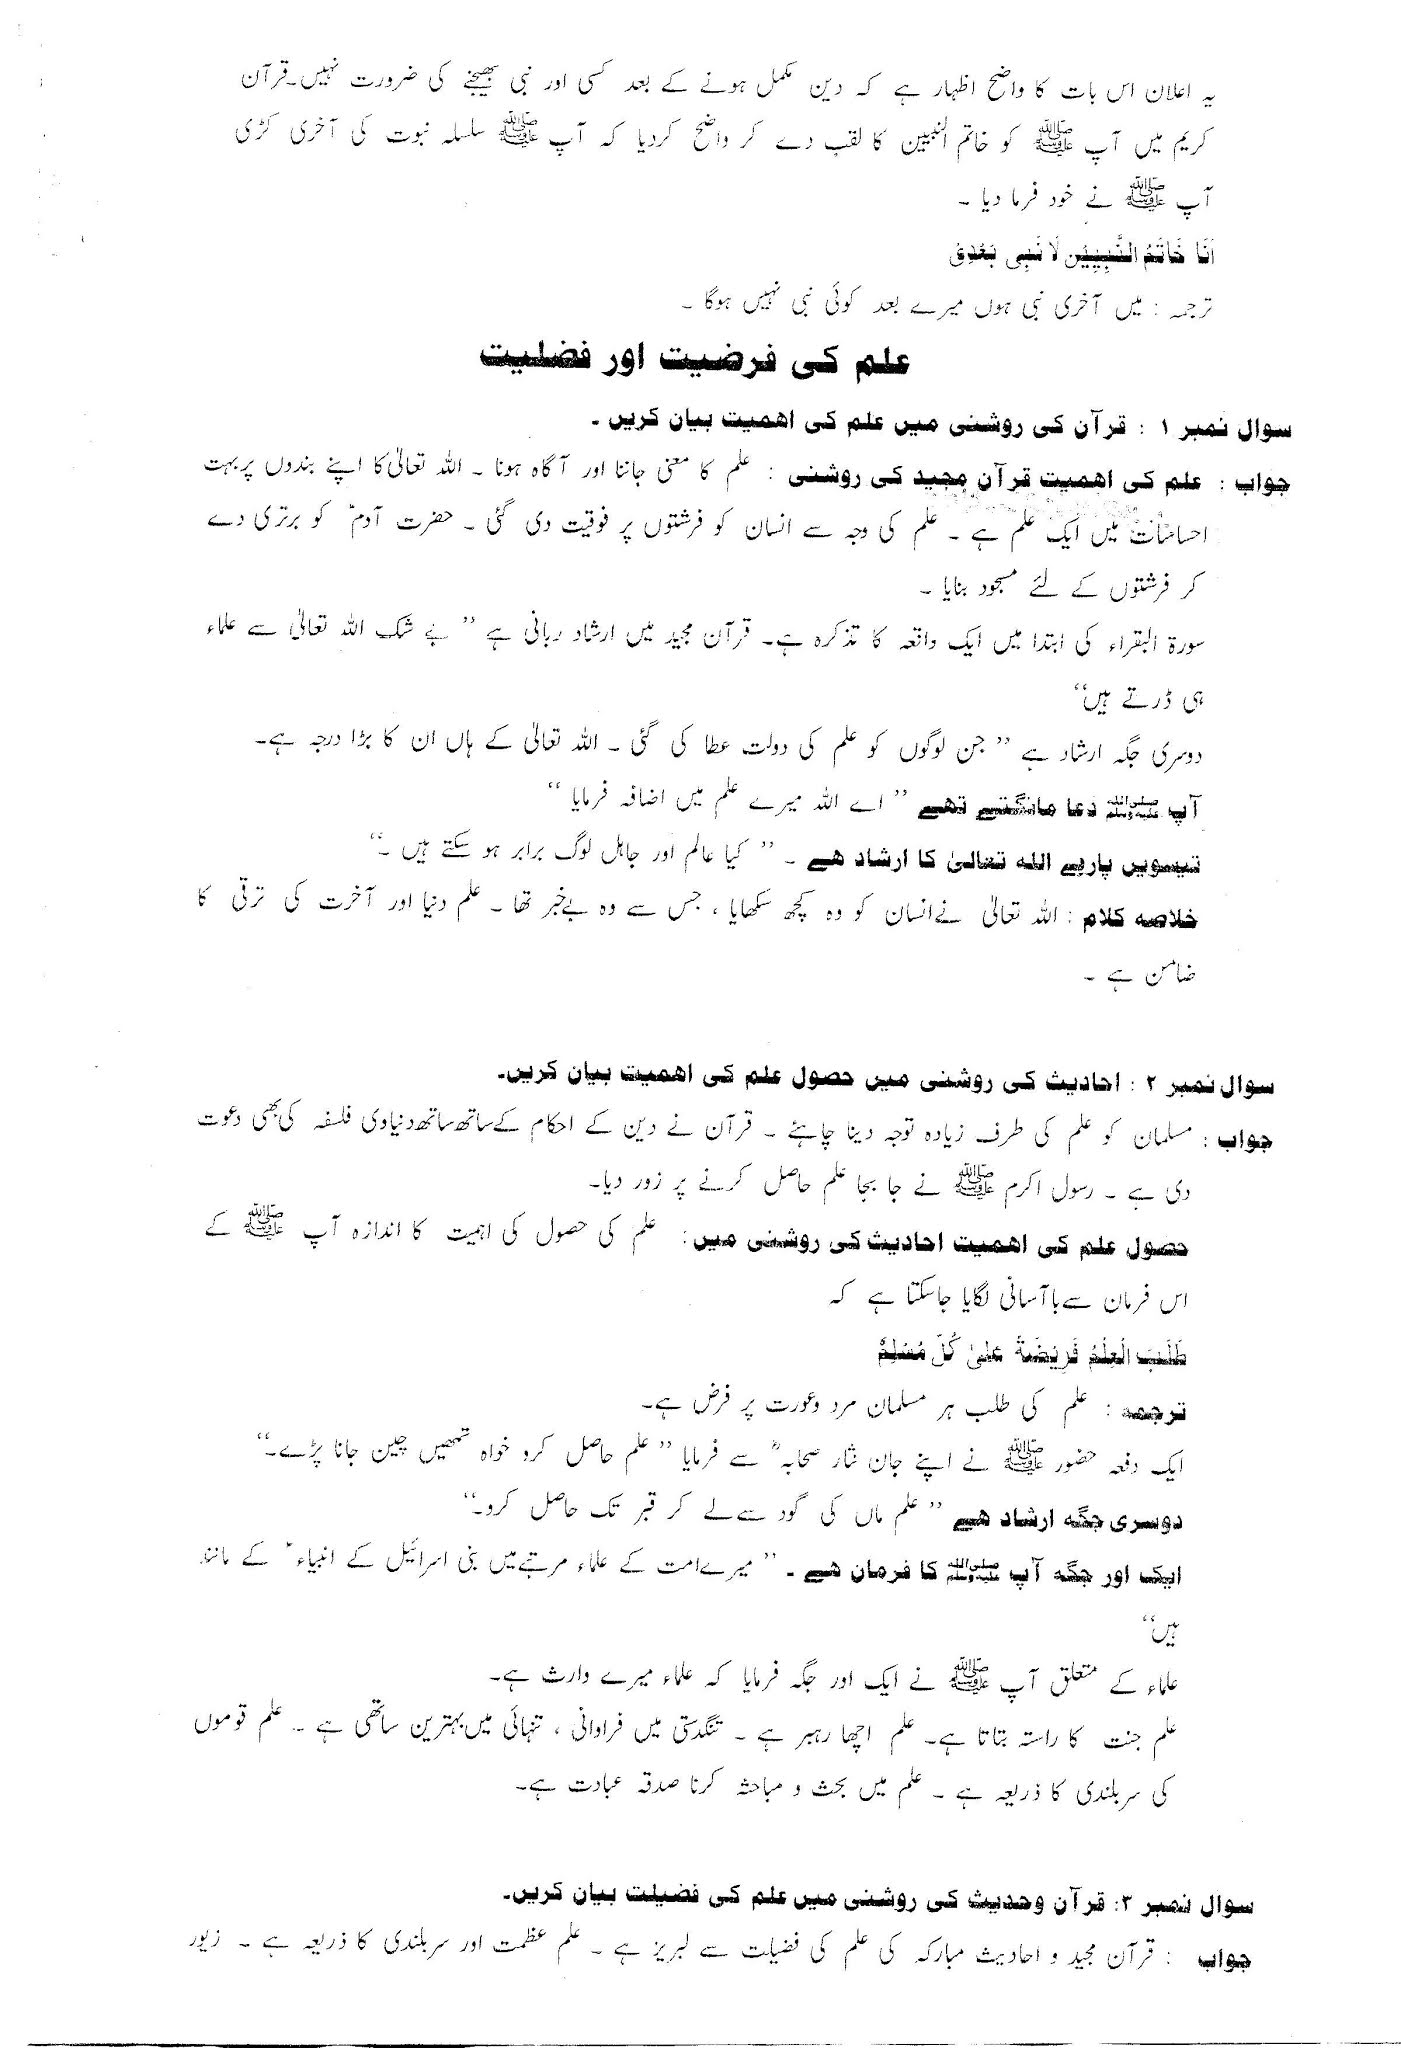 یہ اعلان اس بات کا واضح اظہار ہے کہ دین مکمل ہونے کے بعد کسی اور نبی بھیجنے کی ضرورت نہیں۔قرآن
کریم میں آپ ﷺ کو خاتم النبیین کا لقب دے کر واضح کردیا کہ آپ ﷺ سلسلہ نبوت کی آخری کڑی
آپ ﷺ نے خود فرما دیا ۔
اَنَا خَاتَمُ النَّبِیِیّن لَا نَبِی بَعْدِیْ
ترجمہ : میں آخری نبی ہوں میرے بعد کوئی نبی نہیں ہوگا ۔
علم کی فرضیت اور فضلیت
سوال نمبر ۱ : قرآن کی روشنی میں علم کی اھمیت بیان کریں ۔
جواب : علم کی اھمیت قرآن مجید کی روشنی : علم کا معنی جاننا اور آگاہ ہونا ۔ اللہ تعالیٰ کا اپنے بندوں پر بہت
احسانات میں ایک علم ہے ۔ علم کی وجہ سے انسان کو فرشتوں پر فوقیت دی گئی ۔ حضرت آدمؑ کو برتری دے
کر فرشتوں کے لئے مسجود بنایا ۔
سورۃ البقراء کی ابتدا میں ایک واقعہ کا تذکرہ ہے۔ قرآن مجید میں ارشاد ربانی ہے ” بے شک اللہ تعالیٰ سے علماء
ہی ڈرتے ہیں“
دوسری جگہ ارشاد ہے ” جن لوگوں کو علم کی دولت عطا کی گئی ۔ اللہ تعالیٰ کے ہاں ان کا بڑا درجہ ہے۔
آپ ﷺ دعا مانگتے تھے ” اے اللہ میرے علم میں اضافہ فرمایا “
تیسویں پارے اللہ تعالیٰ کا ارشاد ھے ۔ ” کیا عالم اور جاہل لوگ برابر ہو سکتے ہیں ۔“
خلاصہ کلام : اللہ تعالیٰ نے انسان کو وہ کچھ سکھایا ، جس سے وہ بےخبر تھا ۔ علم دنیا اور آخرت کی ترقی کا
ضامن ہے ۔
سوال نمبر ۲ : احادیث کی روشنی میں حصول علم کی اھمیت بیان کریں۔
جواب : مسلمان کو علم کی طرف زیادہ توجہ دینا چاہئے ۔ قرآن نے دین کے احکام کےساتھ ساتھ دنیاوی فلسفہ کی بھی دعوت
دی ہے ۔ رسول اکرم ﷺ نے جا بجا علم حاصل کرنے پر زور دیا۔
حصول علم کی اھمیت احادیث کی روشنی میں : علم کی حصول کی اہمیت کا اندازہ آپ ﷺ کے
اس فرمان سے باآسانی لگایا جاسکتا ہے کہ
طَلَبَ الْعِلْمُ فَرِیْضَۃ عَلیٰ کُلّ مُسْلِمْ
ترجمہ : علم کی طلب ہر مسلمان مرد وعورت پر فرض ہے۔
ایک دفعہ حضور ﷺ نے اپنے جان نثار صحابہؓ سے فرمایا ” علم حاصل کرد خواہ تمھیں چین جانا پڑے۔“
دوسری جگہ ارشاد ھے ” علم ماں کی گود سے لے کر قبر تک حاصل کرو۔“
ایک اور جگہ آپ ﷺ کا فرمان ھے ۔ ” میرے امت کے علماء مرتبے میں بنی اسرائیل کے انبیاءؑ کے مانند
ہیں“
علماء کے متعلق آپ ﷺ نے ایک اور جگہ فرمایا کہ علماء میرے وارث ہے۔
علم جنت کا راستہ بتاتا ہے۔ علم اچھا رہبر ہے ۔ تنگدستی میں فراوانی ، تنہائی میں بہترین ساتھی ہے ۔ علم قوموں
کی سربلندی کا ذریعہ ہے ۔ علم میں بحث و مباحثہ کرنا صدقہ عبادت ہے۔
سوال نمبر ۳: قرآن وحدیث کی روشنی میں علم کی فضیلت بیان کریں۔
جواب : قرآن مجید و احادیث مبارکہ کی علم کی فضیلت سے لبریز ہے ۔ علم عظمت اور سربلندی کا ذریعہ ہے ۔ زیور